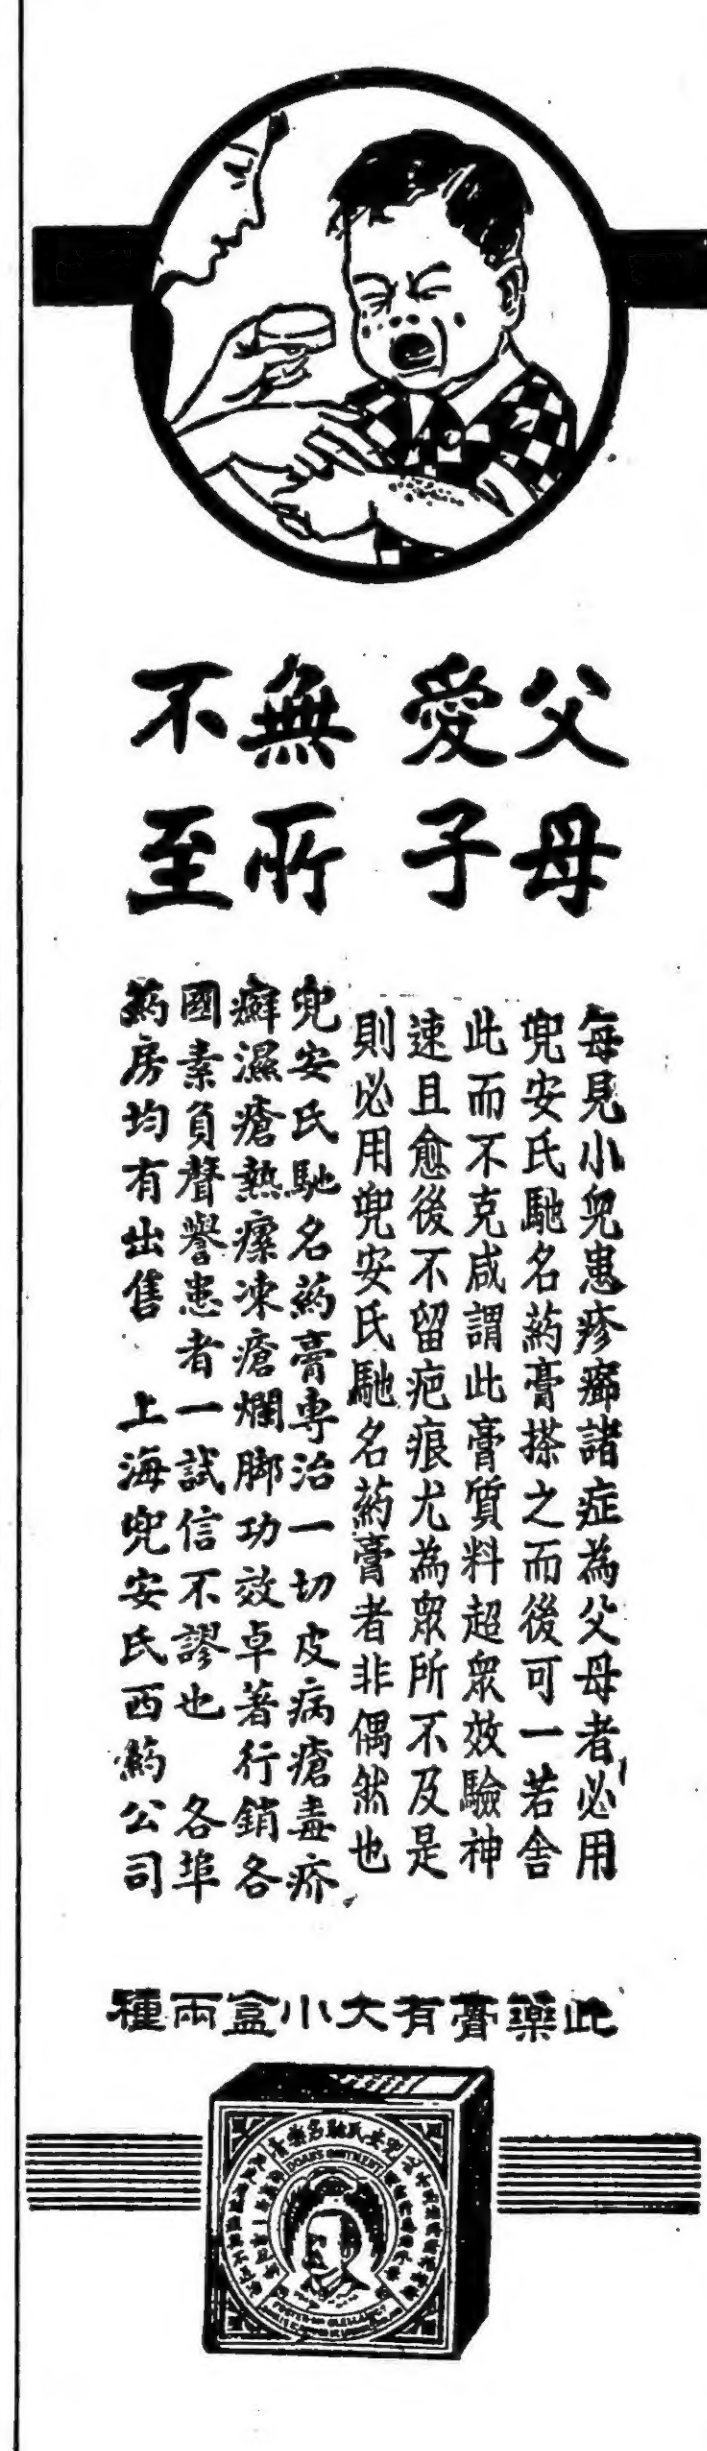 父母
愛子
無所
不至
每見小兒患疹癤諸症為父母者必用
兜安氏馳名葯膏搽之而後可一若舍
此而不克咸謂此膏質料超眾效驗神
速且愈後不留疤痕尤為眾所不及是
則必用兜安氏馳名葯膏者非偶然也
兜安氏馳名葯膏專治一切皮病瘡毒疥
癬濕瘡熱瘰凍瘡爛脚功效卓著行銷各
國素負聲譽患者一試信不謬也　各埠
葯房均有出售　上海兜安氏西葯公司
此藥膏有大小盒兩種
兜安氏馳名藥膏
DOAN'S OINTMENT